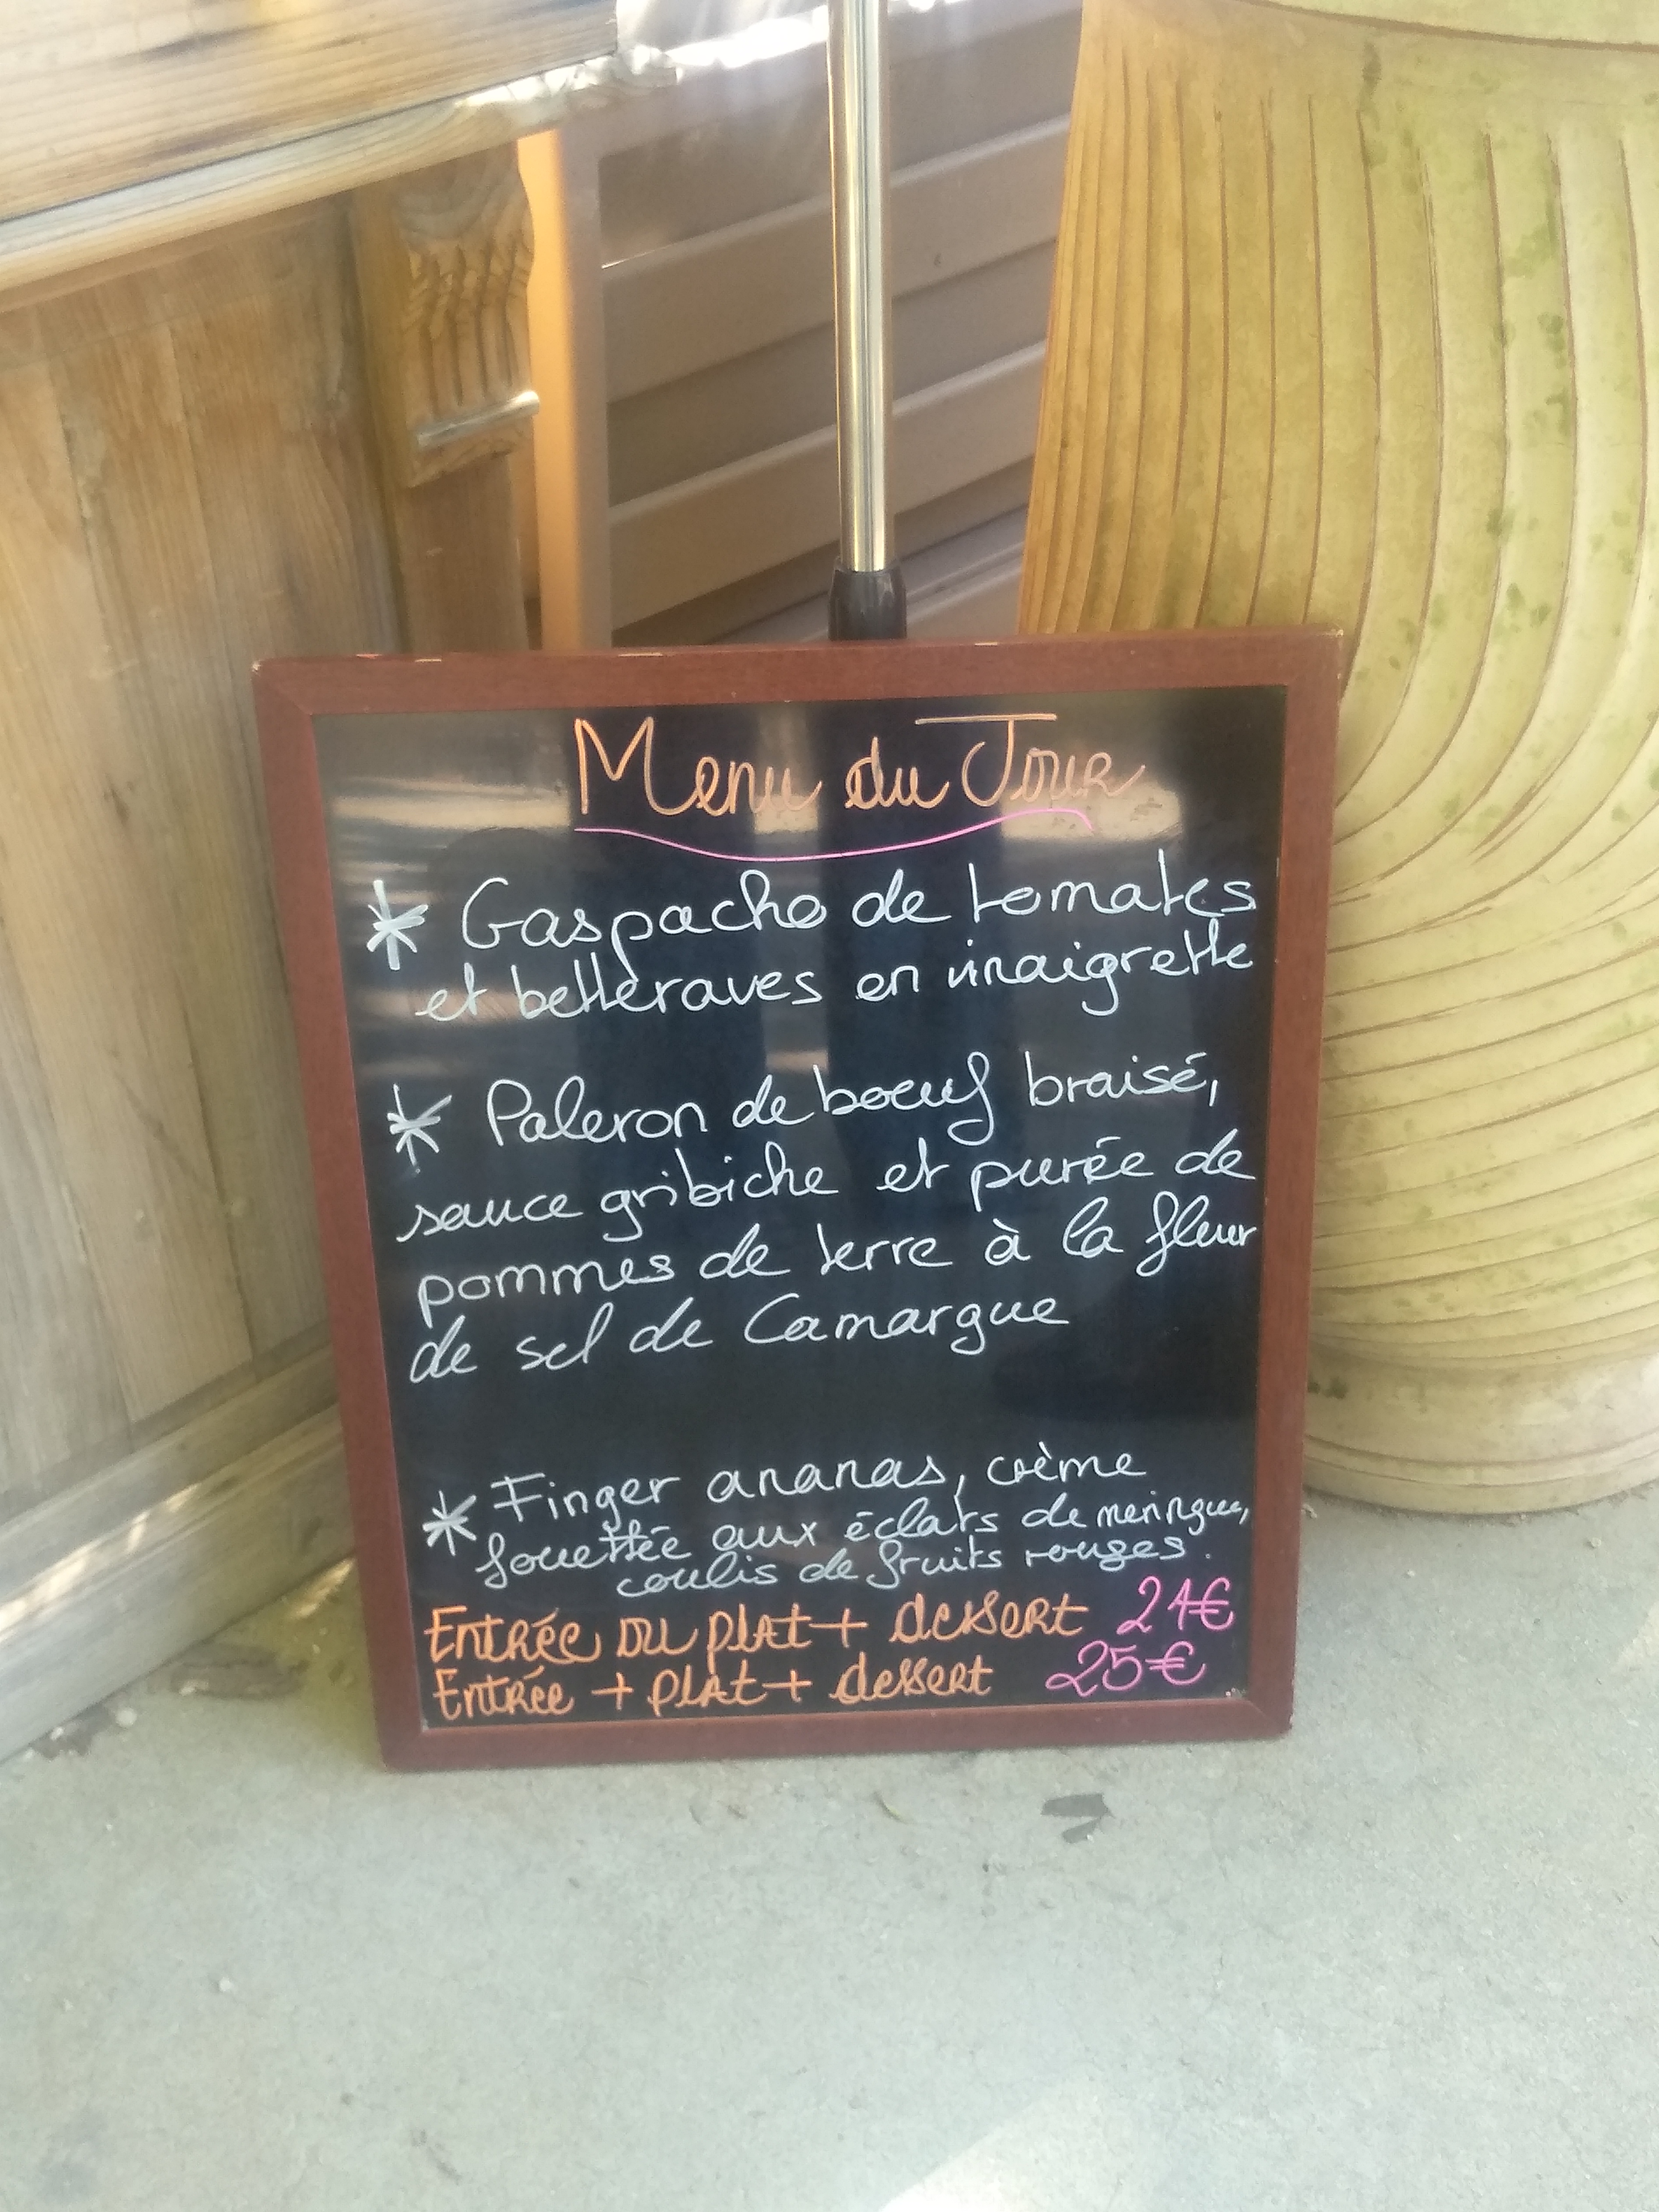 Menu du Jour
* Gaspacho de tomates
et betteraves en vinaigrette
* Paleron de boeuf braisé,
sauce gribiche et purée de
pommes de terre à la fleur
de sel de Camargue
* Finger ananas, crème
fouettée aux éclats de meringue,
coulis de fruits rouges.
Entrée ou plat + dessert 21€
Entrée + plat + dessert 25€